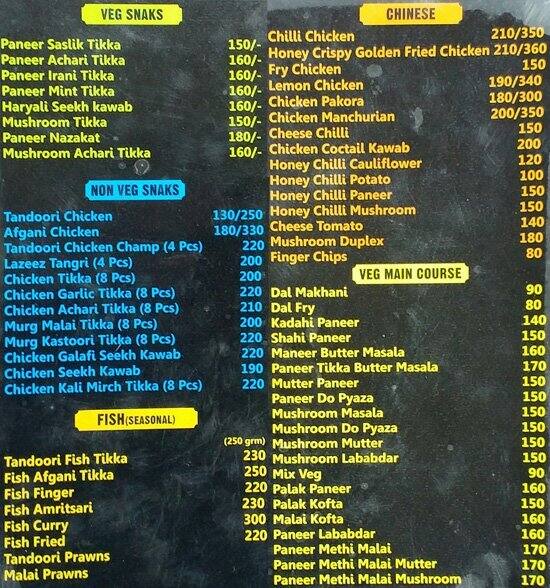 VEG SNAKS
Paneer Saslik Tikka 150/-
Paneer Achari Tikka 160/-
Paneer Irani Tikka 160/-
Paneer Mint Tikka 160/-
Haryali Seekh kawab 160/-
Mushroom Tikka 150/-
Paneer Nazakat 180/-
Mushroom Achari Tikka 160/-
NON VEG SNAKS
Tandoori Chicken 130/250
Afgani Chicken 180/330
Tandoori Chicken Champ (4 Pcs) 220
Lazeez Tangri (4 Pcs) 200
Chicken Tikka (8 Pcs) 200
Chicken Garlic Tikka (8 Pcs) 220
Chicken Achari Tikka (8 Pcs) 210
Murg Malai Tikka (8 Pcs) 200
Murg Kastoori Tikka (8 Pcs) 220
Chicken Galafi Seekh Kawab 220
Chicken Seekh Kawab 190
Chicken Kali Mirch Tikka (8 Pcs) 220
FISH(SEASONAL)
(250 grm)
Tandoori Fish Tikka 230
Fish Afgani Tikka 250
Fish Finger 220
Fish Amritsari 230
Fish Curry 300
Fish Fried 220
Tandoori Prawns
Malai Prawns
CHINESE
Chilli Chicken 210/350
Honey Crispy Golden Fried Chicken 210/360
Fry Chicken 150
Lemon Chicken 190/340
Chicken Pakora 180/300
Chicken Manchurian 200/350
Cheese Chilli 150
Chicken Coctail Kawab 200
Honey Chilli Cauliflower 120
Honey Chilli Potato 100
Honey Chilli Paneer 150
Honey Chilli Mushroom 150
Cheese Tomato 140
Mushroom Duplex 180
Finger Chips 80
VEG MAIN COURSE
Dal Makhani 90
Dal Fry 80
Kadahi Paneer 140
Shahi Paneer 150
Maneer Butter Masala 160
Paneer Tikka Butter Masala 170
Mutter Paneer 150
Paneer Do Pyaza 150
Mushroom Masala 150
Mushroom Do Pyaza 150
Mushroom Mutter 150
Mushroom Lababdar 150
Mix Veg 90
Palak Paneer 160
Palak Kofta 150
Malai Kofta 160
Paneer Lababdar 160
Paneer Methi Malai 170
Paneer Methi Malai Mutter 170
Paneer Methi Malai Mushroom 170